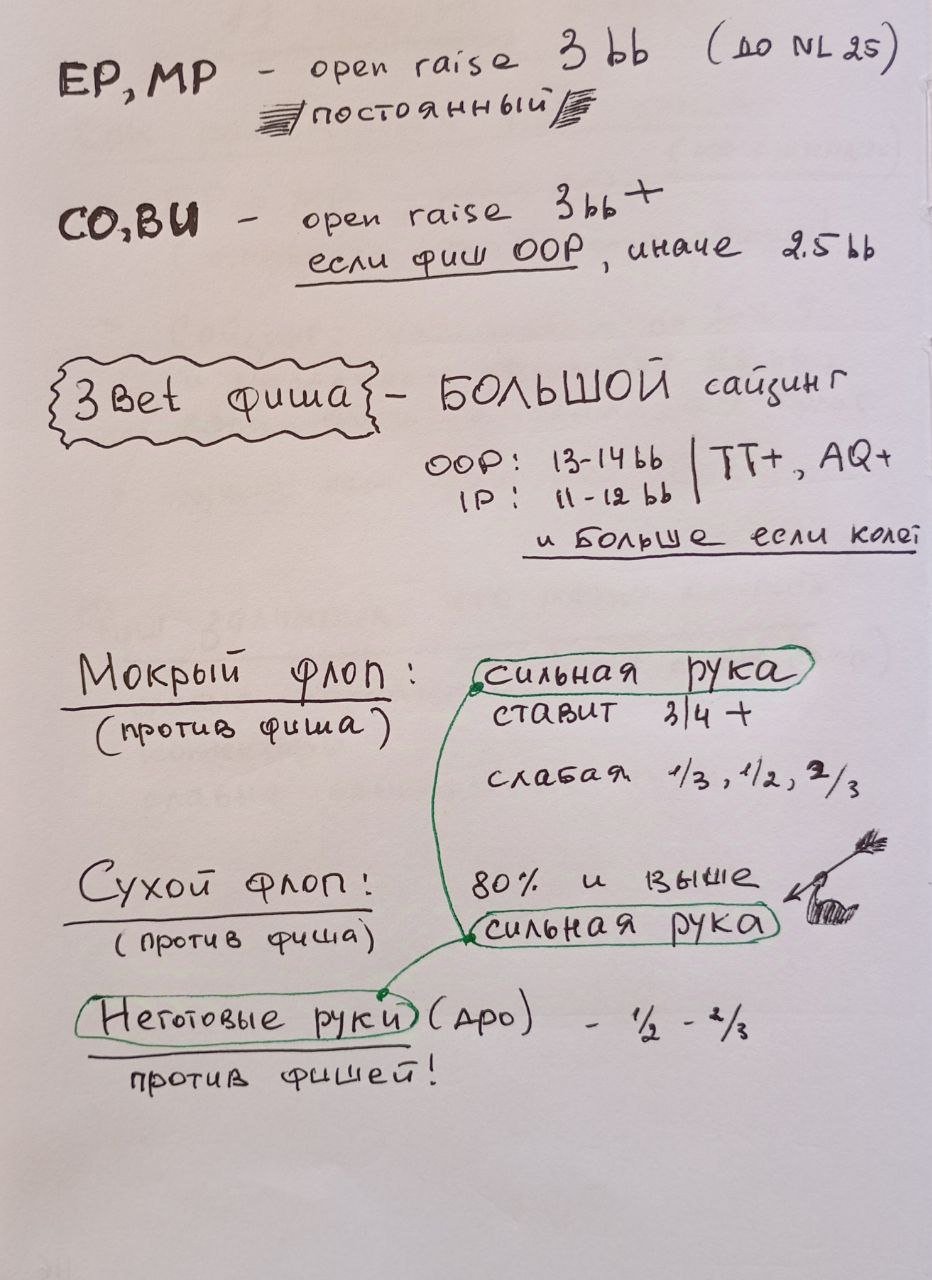 EP, MP - open raise 3 bb (до NL 25)
/постоянный/
CO, BU - open raise 3 bb+
если фиш OOP, иначе 2.5 bb
3 Bet фиша - БОЛЬШОЙ сайзинг
OOP: 13-14 bb | TT+, AQ+
IP: 11-12 bb
и больше если колет
Мокрый флоп: сильная рука
(против фиша) ставит 3/4 +
слабая 1/3, 1/2, 2/3
Сухой флоп: 80% и выше
(против фиша) сильная рука
Неготовые руки (дро) - 1/2 - 2/3
против фишей!